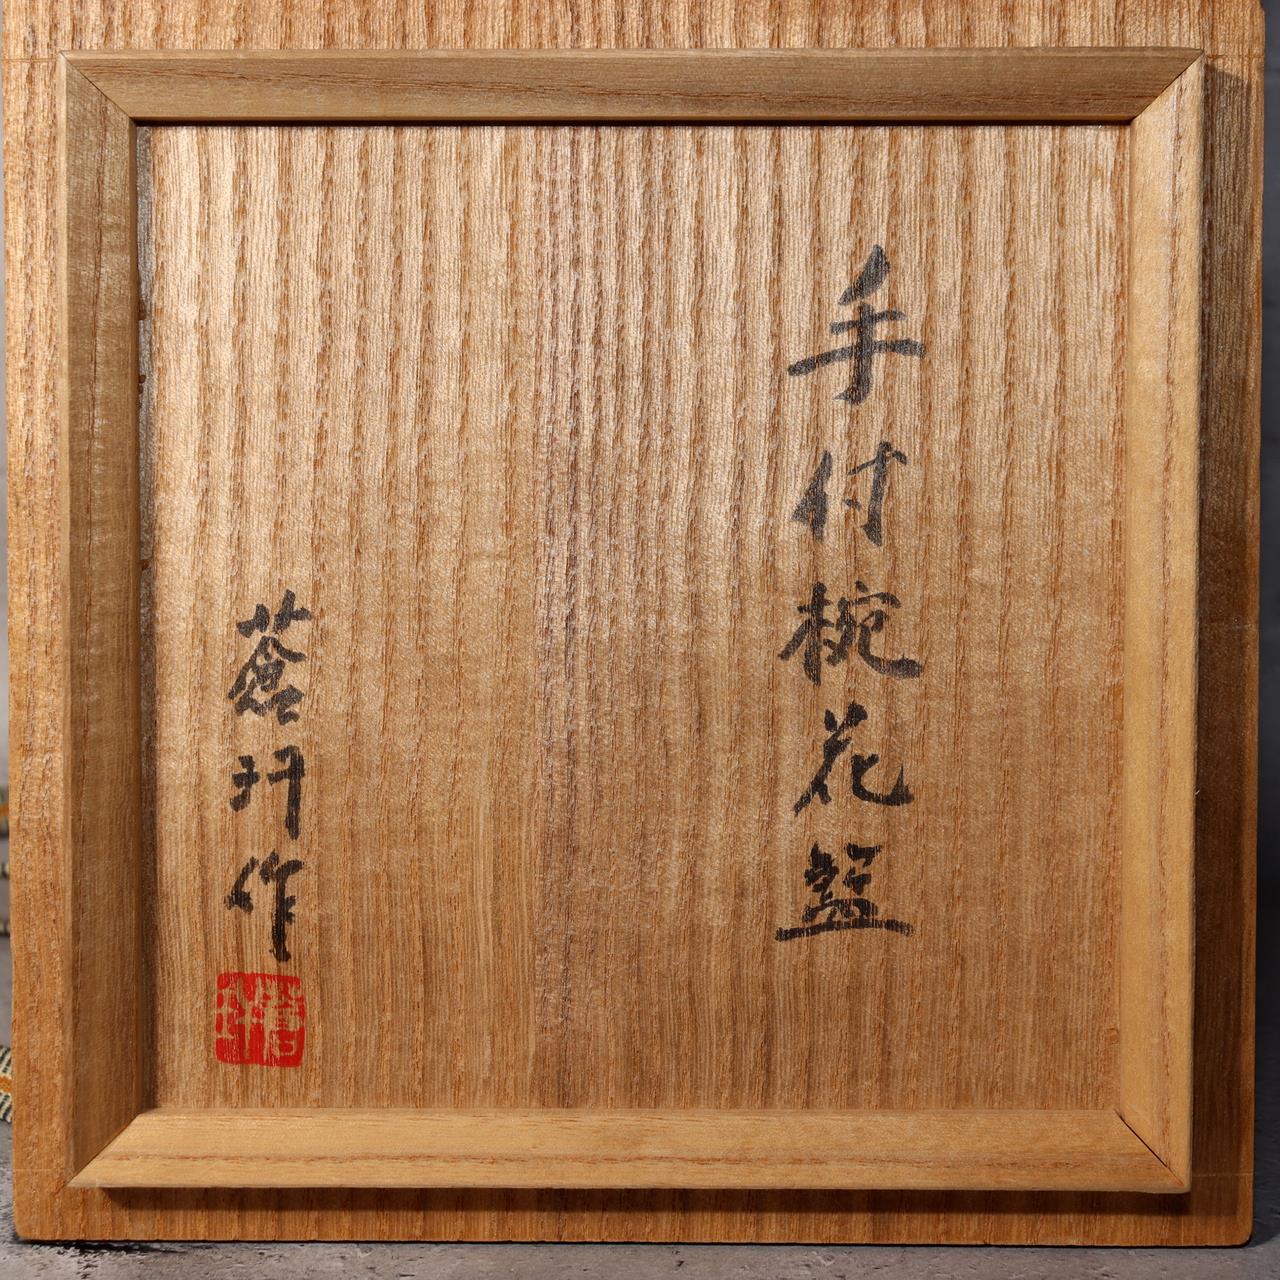 手付椀花籃
蒼玕作